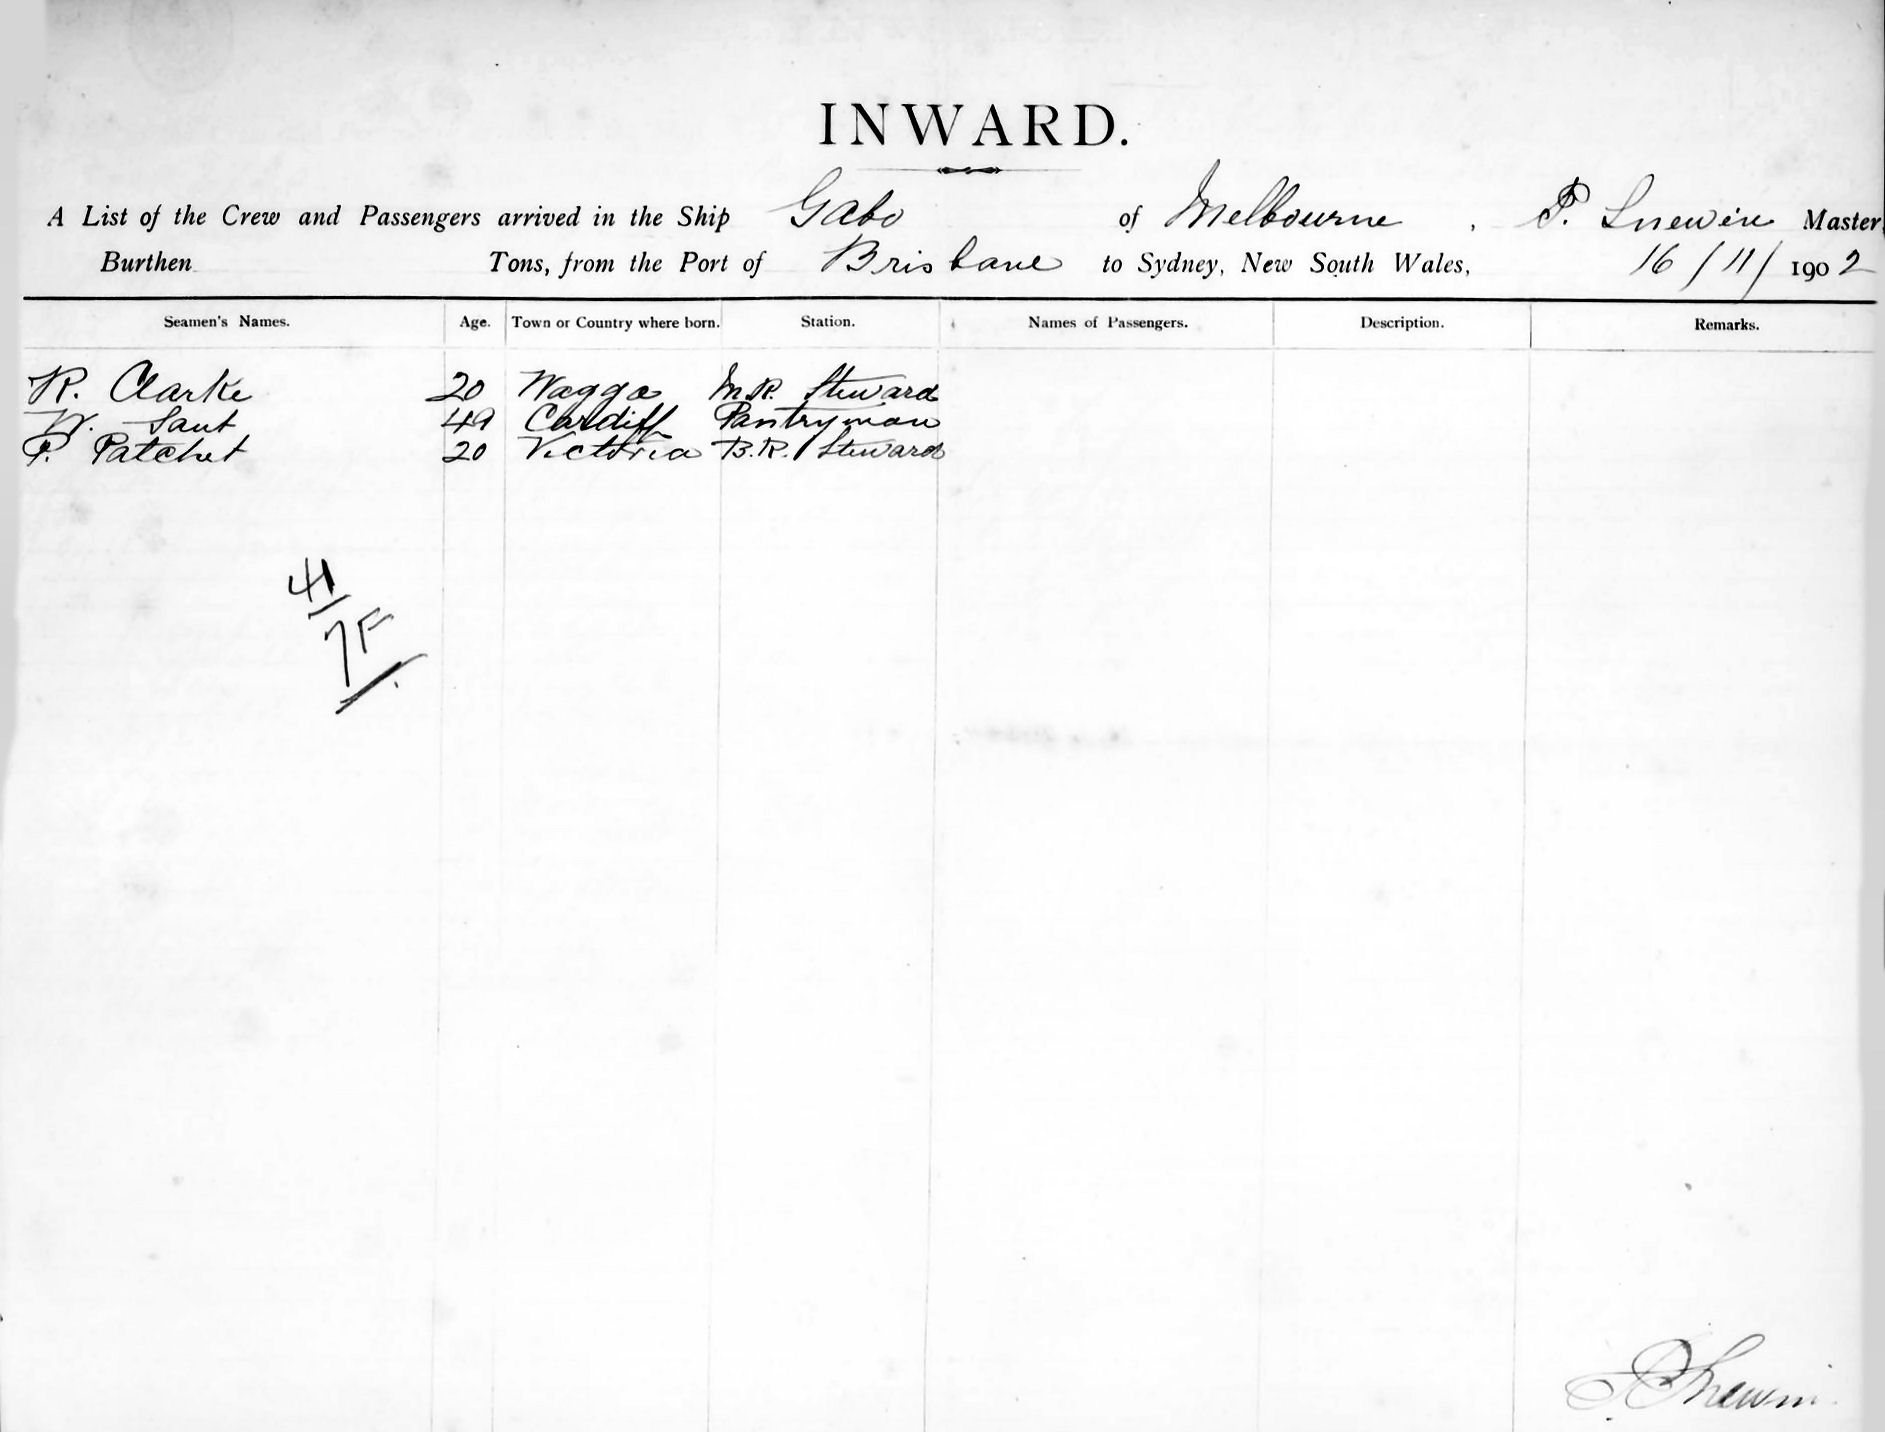 INWARD.
A List of the Crew and Passengers arrived in the Ship Gabo of Melbourne, P. Snewin Master
Burthen Tons, from the Port of Brisbane to Sydney, New South Wales, 16/11/1902
Seamen's Names. Age. Town or Country where born. Station. Names of Passengers. Description. Remarks.
R. Clarke 20 Wagga M.R. Steward
W. Saut 49 Cardiff Pantryman
P. Patchet 20 Victoria B.R. Steward
41/
7F
Snewin